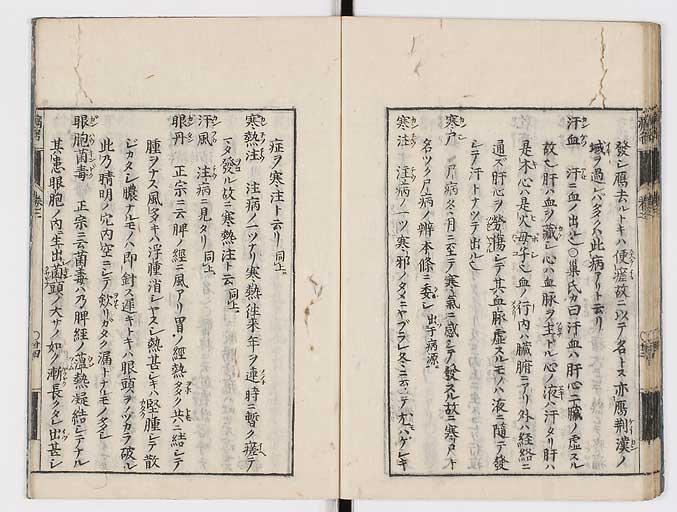 發シ鴈去ルトキハ便瘥故ニ以テ名トス亦鴈荊漢ノ
域ヲ過レバ多ク此病アリト云リ
汗血 汗ニ血ノ出ル也○巣氏カ曰汗血ハ肝心二臓ノ虚スル
故也肝ハ血ヲ藏シ心ハ血脉ヲ主トル心ノ液ハ汗タリ肝ハ
是木心ハ是火母子也血ノ行内ハ臓腑ニアリ外ハ経絡ニ
通ズ肝心ヲ勞傷シテ其血脉虚スルモノハ液ニ隨テ發
シテ汗トナツテ出ル也
寒尸 尸病冬ノ月ニ至テ寒氣ニ感シテ發スル故ニ寒尸ト
名ツク尸病ノ辨本條ニ委シ出于病源
寒注 注病ノ一ツ寒邪ノタメニヤブラレ冬ニ云ニテ尤ハゲシキ
症ヲ寒注ト云リ 同上
寒熱注 注病ノ一ツナリ寒熱往来年ヲ連時ニ暫ク瘥テ
マタ發ル故ニ寒熱注ト云 同上
汗風 注病ニ見タリ 同上
眼丹 正宗ニ云脾ノ經ニ風アリ胃ノ經熱多ク共ニ結シテ
腫ヲナス風多キハ浮腫消シヤスシ熱甚シキハ堅腫シテ散
シガタシ膿ナルモノハ即針ス遅キトキハ眼頭ヲノヅカラ破レ
此乃晴明ノ穴内空ニシテ斂リガタク漏トナルモノ多シ
眼胞菌毒 正宗ニ云菌毒ハ乃脾經ノ薀熱凝結シテナル
其患眼胞ノ内ニ生出菌頭ノ大サノ如ノ漸長クタレ出甚シ